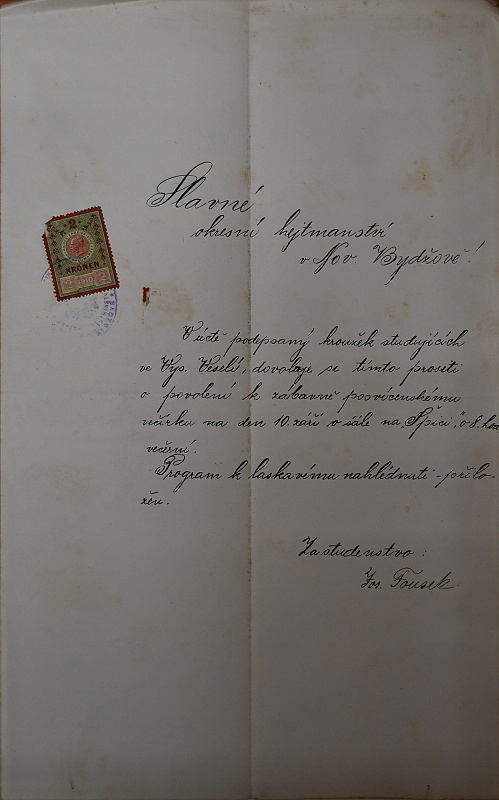 Slavné
okresní hejtmanství
v Nov. Bydžově!
2
KRONEN
2 1910 2
V úctě podepsaný kroužek studujících
ve Vys. Veselí, dovoluje si tímto prositi
o povolení k zábavně posvícenskému
věnečku na den 10. září v sále na „Špici", o 8. hod
večerní.
Program k laskavému nahlédnutí - přilo-
žen.
Za studenstvo:
Jos. Fousek.